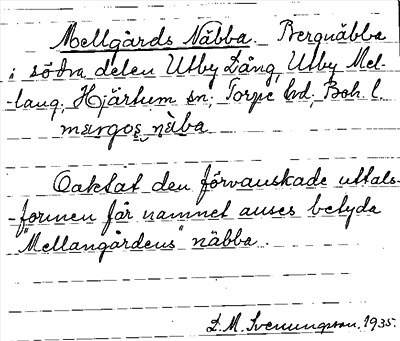 Mellgårds Näbba. Bergnäbba
i södra delen Utby Lång, Utby Mel-
-lang, Hjärtum sn; Torpe hd, Boh. l.
margos näba
Oaktat den förvanskade uttals-
-formen får namnet anses betyda
"Mellangårdens" näbba.
D. M. Svenungsson. 1935.